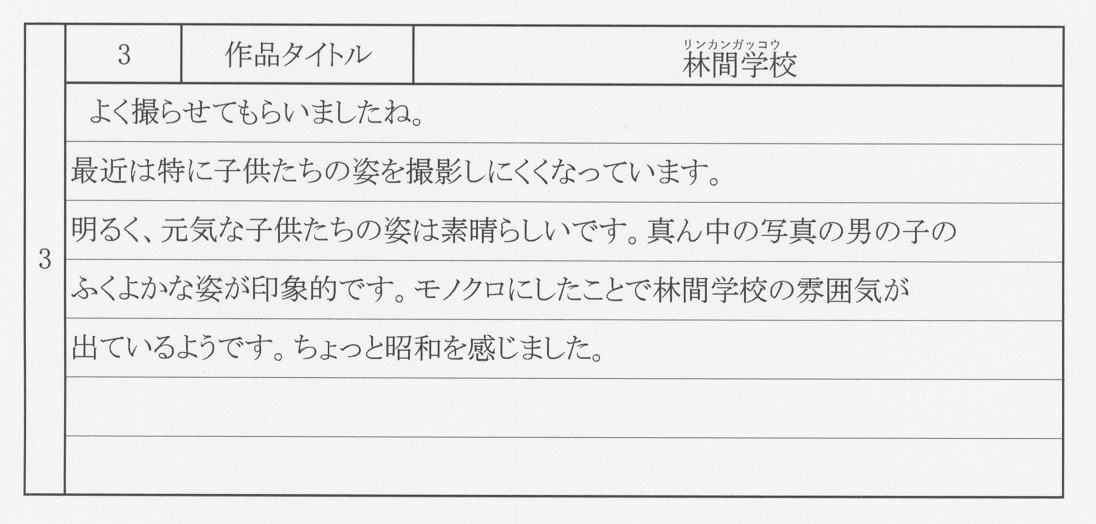 3 作品タイトル 林間学校
リンカンガッコウ
よく撮らせてもらいましたね。
最近は特に子供たちの姿を撮影しにくくなっています。
明るく、元気な子供たちの姿は素晴らしいです。真ん中の写真の男の子の
ふくよかな姿が印象的です。モノクロにしたことで林間学校の雰囲気が
出ているようです。ちょっと昭和を感じました。
3